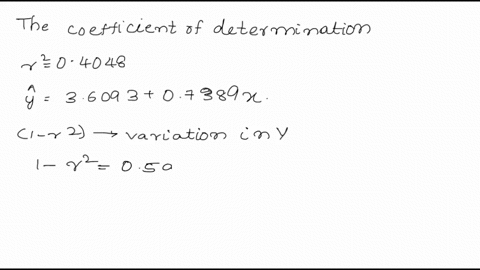 The coefficient of determination
r²=0.4048
ŷ = 3.6093+0.7389x.
(1-r2) → variation in Y
1- r²= 0.59